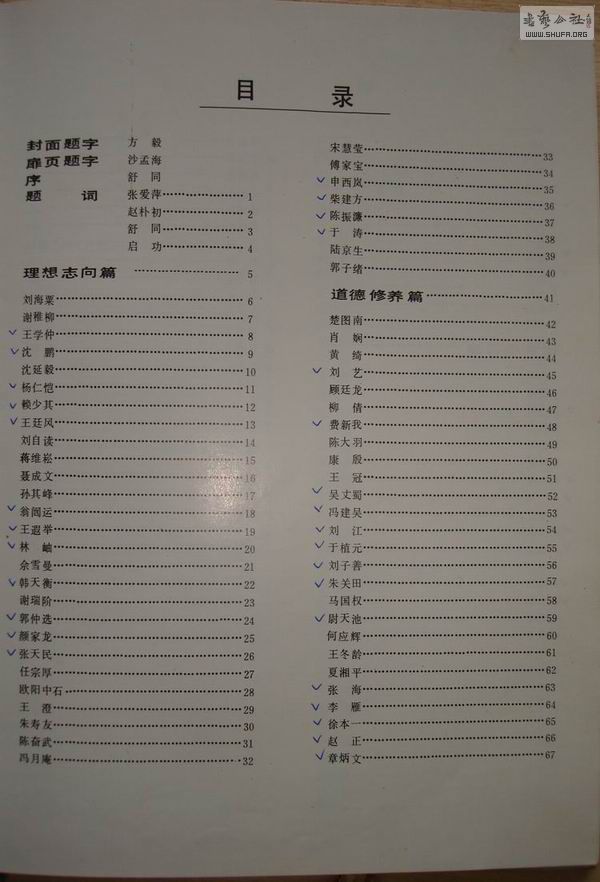 书艺公社
WWW.SHUFA.ORG
目 录
封面题字 方 毅
扉页题字 沙孟海
序 舒 同
题 词 张爱萍 1
赵朴初 2
舒 同 3
启 功 4
理想志向篇 5
刘海粟 6
谢稚柳 7
王学仲 8
沈 鹏 9
沈延毅 10
杨仁恺 11
赖少其 12
王廷风 13
刘自读 14
蒋维崧 15
聂成文 16
孙其峰 17
翁闿运 18
王遐举 19
林 岫 20
余雪曼 21
韩天衡 22
谢瑞阶 23
郭仲选 24
颜家龙 25
张天民 26
任宗厚 27
欧阳中石 28
王 澄 29
朱寿友 30
陈奋武 31
冯月庵 32
宋慧莹 33
傅家宝 34
申西岚 35
柴建方 36
陈振濂 37
于 涛 38
陆京生 39
郭子绪 40
道德修养篇 41
楚图南 42
肖 娴 43
黄 绮 44
刘 艺 45
顾廷龙 46
柳 倩 47
费新我 48
陈大羽 49
康 殷 50
王 冠 51
吴丈蜀 52
冯建吴 53
刘 江 54
于植元 55
刘子善 56
朱关田 57
马国权 58
尉天池 59
何应辉 60
王冬龄 61
夏湘平 62
张 海 63
李 雁 64
徐本一 65
赵 正 66
章炳文 67